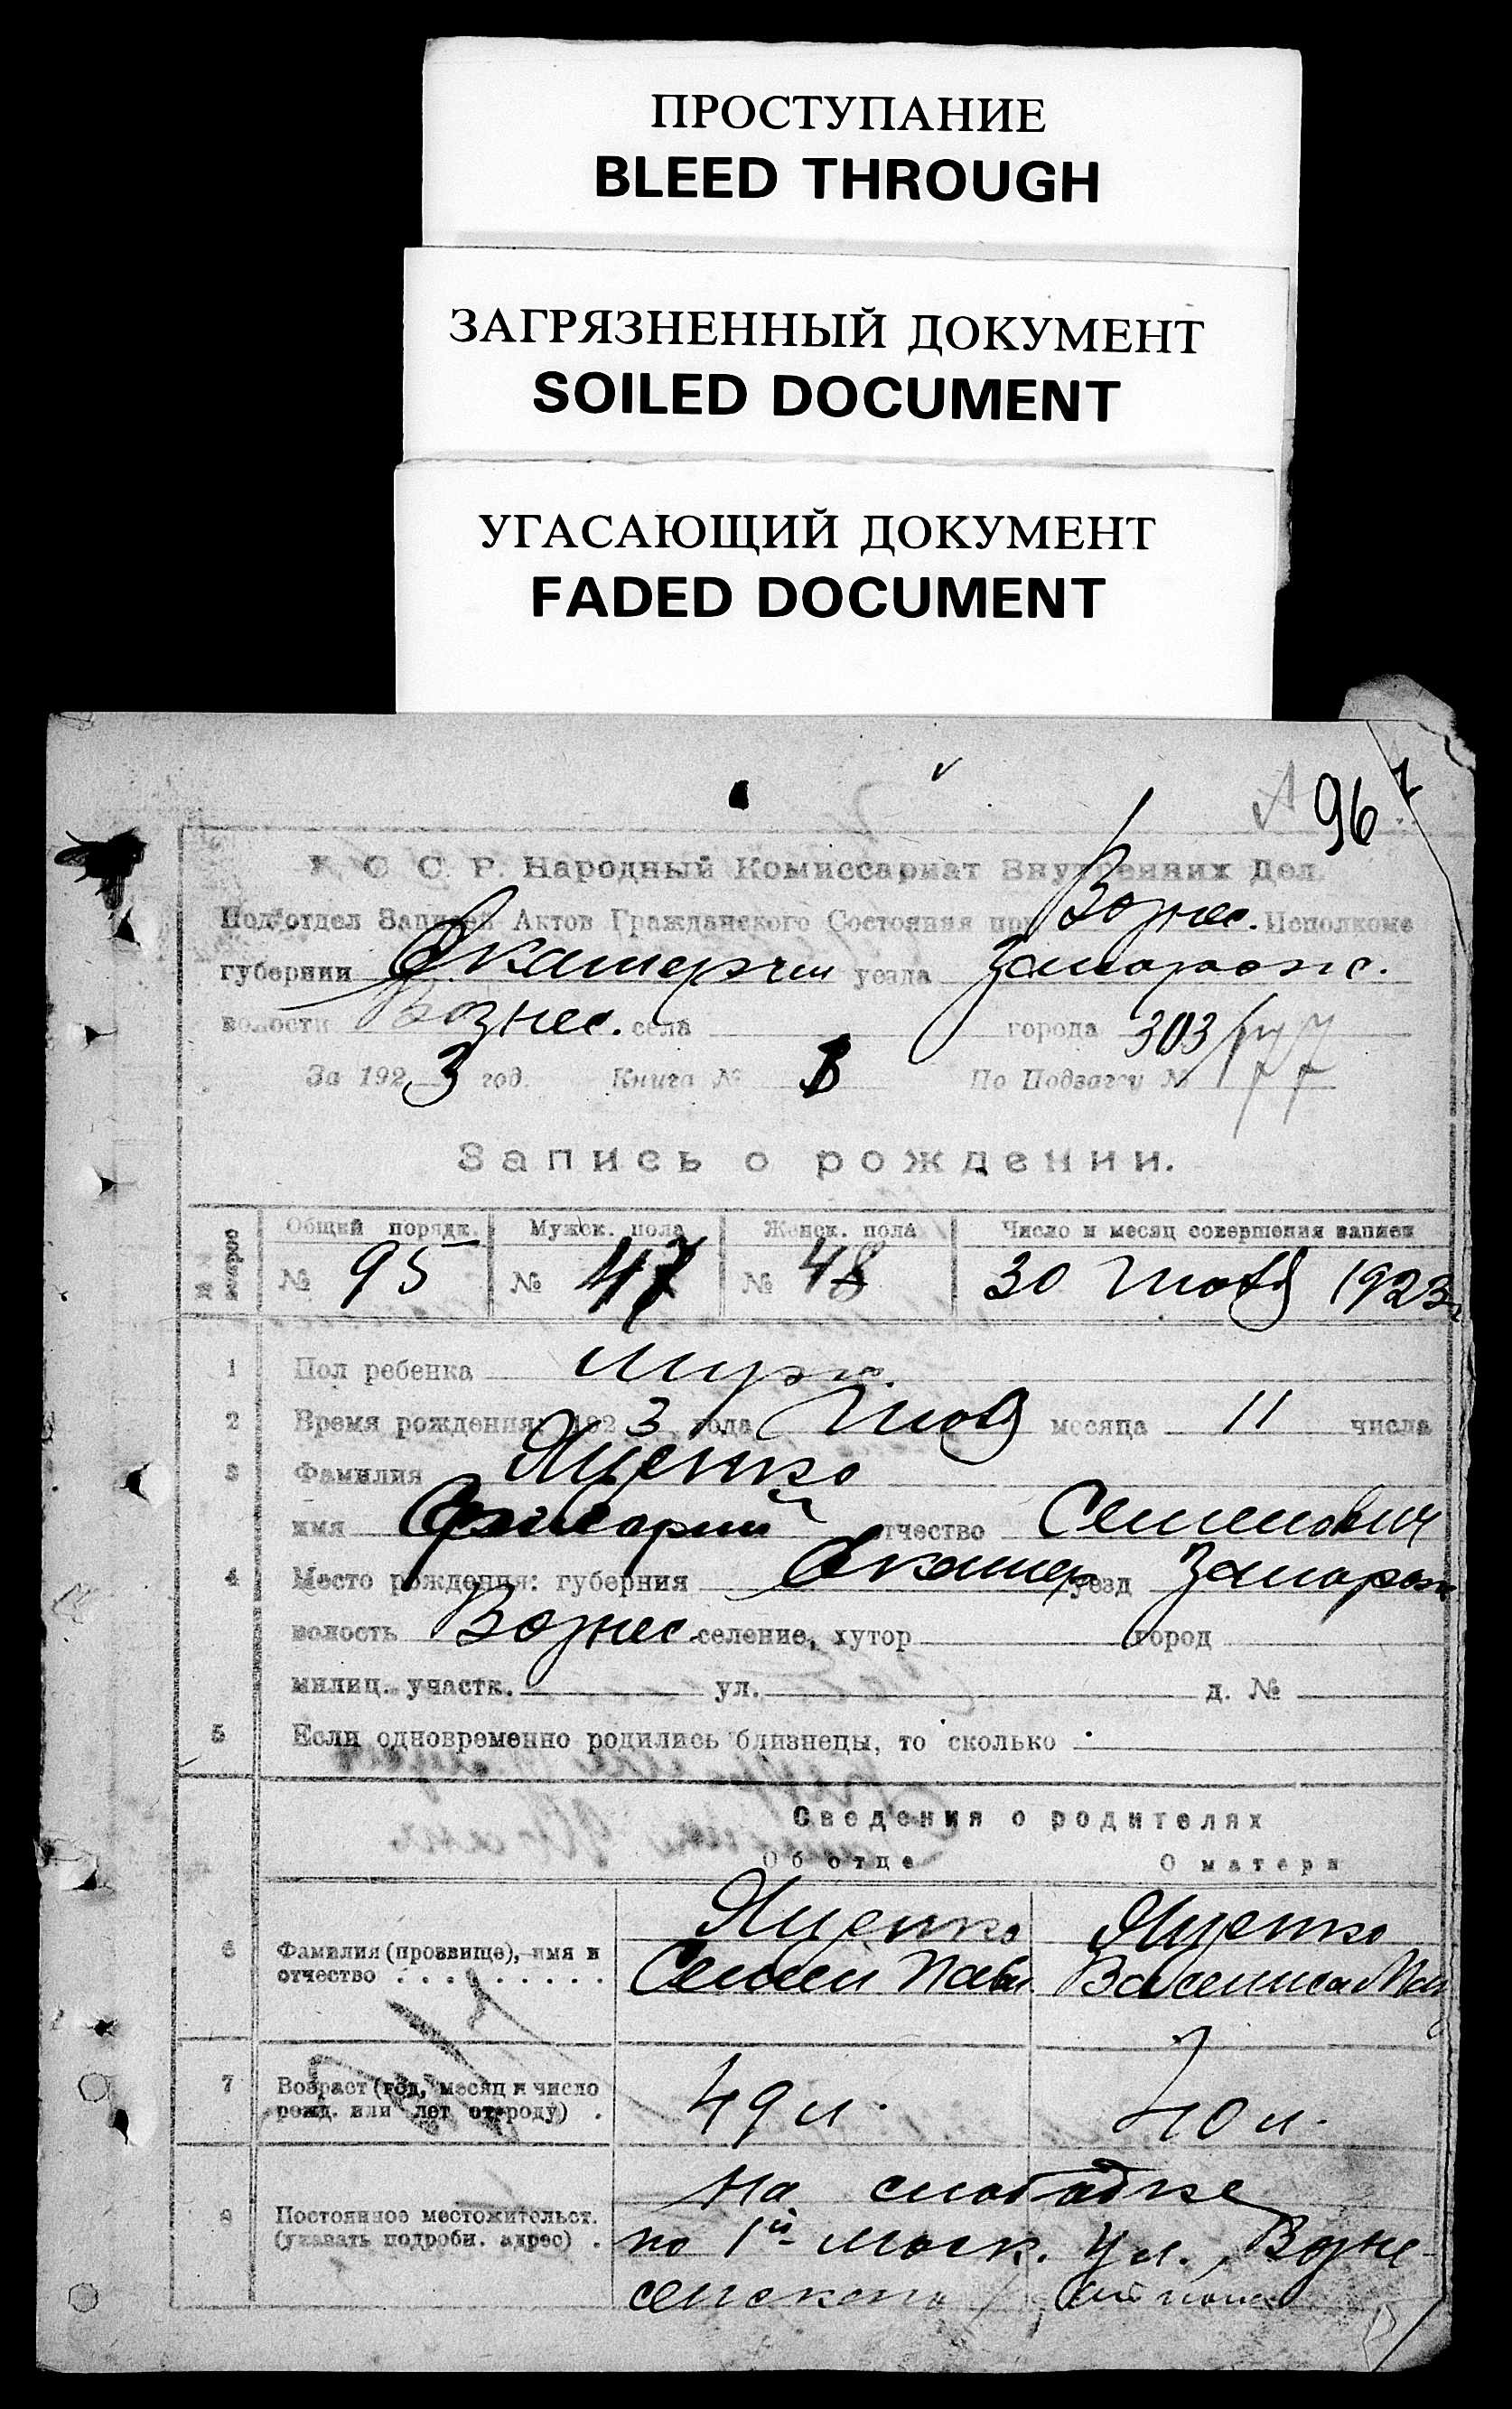 ПРОСТУПАНИЕ
BLEED THROUGH
ЗАГРЯЗНЕННЫЙ ДОКУМЕНТ
SOILED DOCUMENT
УГАСАЮЩИЙ ДОКУМЕНТ
FADED DOCUMENT
96
С. С. Р. Народный Комиссариат Внутренних Дел.
Подотдел Записей Актов Гражданского Состояния при Вознес. Исполкоме
губернии уезда Запорожс.
волости Вознес. села города 303/
За 1923 год. Книга № По Подзагсу №
Запись о рождении.
Общий порядк. Мужск. пола Женск. пола Число и месяц совершения записи
№ 95 № 47 № 48 30 1923
1 Пол ребенка Мужс.
2 Время рождения: 1923 года месяца 11 числа
3 Фамилия Яценко
имя Григорий отчество Семенович
4 Место рождения: губерния Екатер уезд Запорож
волость Вознес селение, хутор город
милиц. участк. ул. д. №
5 Если одновременно родились близнецы, то сколько
Сведения о родителях
Об отце О матери
Яценко Яценко
6 Фамилия (прозвище), имя и
отчество Семен Павл.
7 Возраст (год, месяц и число
рожд. или лет отроду) 49 л. 40 л.
8 Постоянное местожительст.
(указать подробн. адрес)
На слободке
по 1й Моск. ул. Возне-